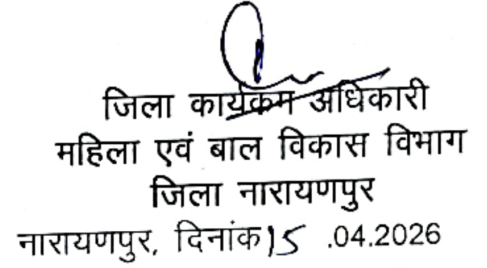 जिला कार्यक्रम अधिकारी
महिला एवं बाल विकास विभाग
जिला नारायणपुर
नारायणपुर, दिनांक 15 .04.2026